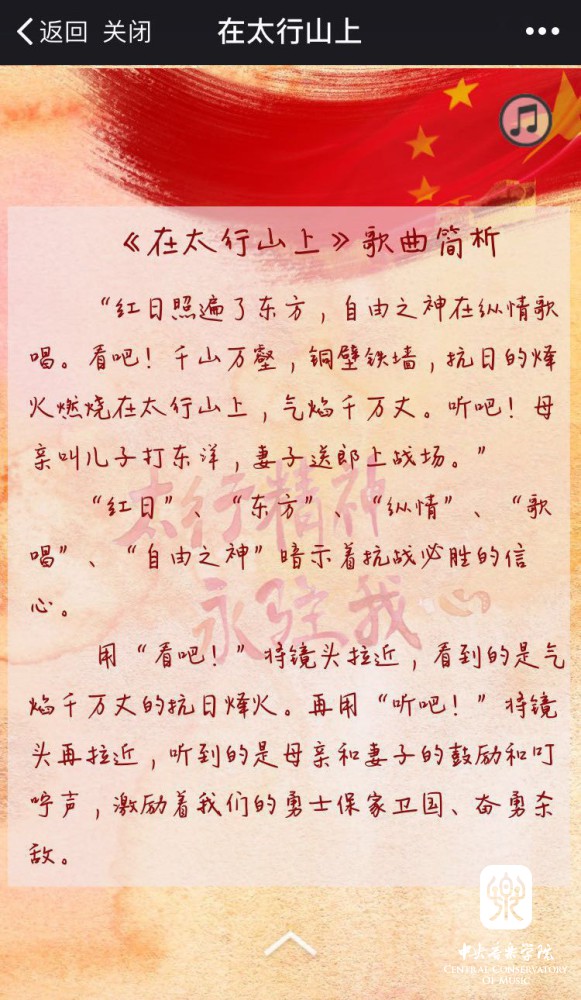 返回 关闭 在太行山上
《在太行山上》歌曲简析
“红日照遍了东方，自由之神在纵情歌
唱。看吧！千山万壑，铜壁铁墙，抗日的烽
火燃烧在太行山上，气焰千万丈。听吧！母
亲叫儿子打东洋，妻子送郎上战场。”
“红日”、“东方”、“纵情”、“歌
唱”、“自由之神”暗示着抗战必胜的信
心。
用“看吧！”将镜头拉近，看到的是气
焰千万丈的抗日烽火。再用“听吧！”将镜
头再拉近，听到的是母亲和妻子的鼓励和叮
咛声，激励着我们的勇士保家卫国、奋勇杀
敌。
太行精神
永驻我心
中央音乐学院
CENTRAL CONSERVATORY
OF MUSIC